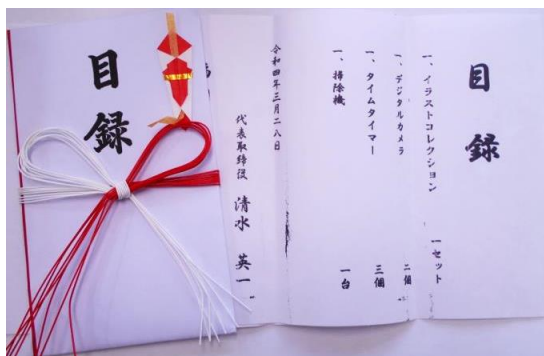 目録
一、イラストコレクション 一セット
一、デジタルカメラ 二個
一、タイムタイマー 三個
一、掃除機 一台
令和四年三月二八日
代表取締役 清水 英一
目録